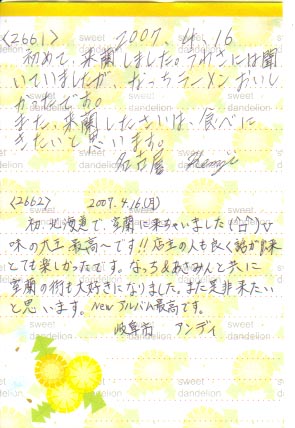 <2661> 2007. 4. 16
初めて、来蘭しました。うわさには聞
いていましたが、なっちラーメンおいし
かったです。
また、来蘭したさいは、食べに
きたいと思います。
名古屋 Kenji
<2662> 2007.4.16(月)
初、北海道で、室蘭に来ちゃいました(^△^)v
味の大王最高〜です!!店主の人も良く話が出来
とても楽しかったです。なっち&あさみんと共に
室蘭の街も大好きになりました。また是非来たい
と思います。Newアルバム最高です。
岐阜市 アンディ
sweet
dandelion